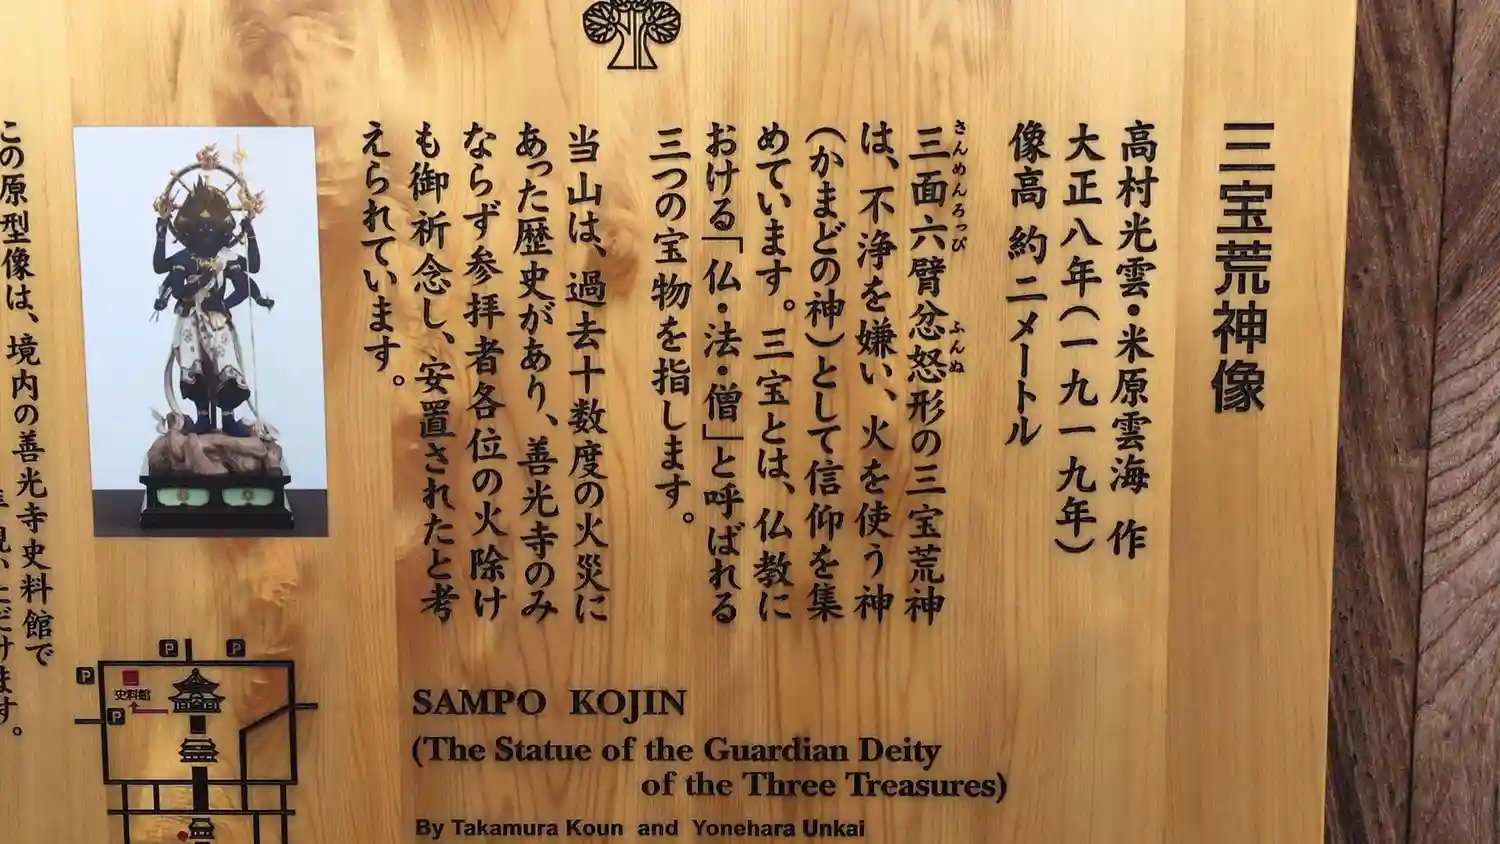 三宝荒神像
高村光雲・米原雲海 作
大正八年(一九一九年)
像高 約二メートル
さんめんろっぴ ふんぬ
三面六臂忿怒形の三宝荒神
は、不浄を嫌い、火を使う神
(かまどの神)として信仰を集
めています。三宝とは、仏教に
おける「仏・法・僧」と呼ばれる
三つの宝物を指します。
当山は、過去十数度の火災に
あった歴史があり、善光寺のみ
ならず参拝者各位の火除け
も御祈念し、安置されたと考
えられています。
この原型像は、境内の善光寺史料館で
だけます。
P
P
P
史料館
P
SAMPO KOJIN
(The Statue of the Guardian Deity
of the Three Treasures)
By Takamura Koun and Yonehara Unkai